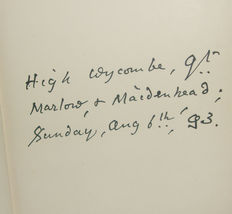 High Wycombe, Gt.
Marlow, & Maidenhead;
Sunday, Aug 6th, 93.